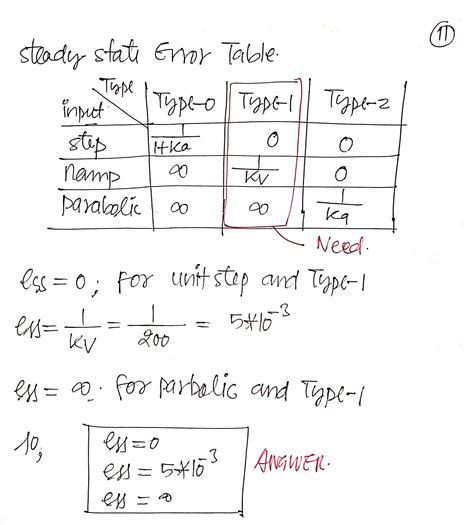 11
steady state Error Table.
Type
input Type-0 Type-1 Type-2
step 1/1+Ka 0 0
Ramp ∞ 1/KV 0
parabolic ∞ ∞ 1/Ka
Need.
ess = 0; for unit step and Type-1
ess = 1/KV = 1/200 = 5*10^-3
ess = ∞. for parbolic and Type-1
so,
ess = 0
ess = 5*10^-3
ess = ∞
ANSWER.